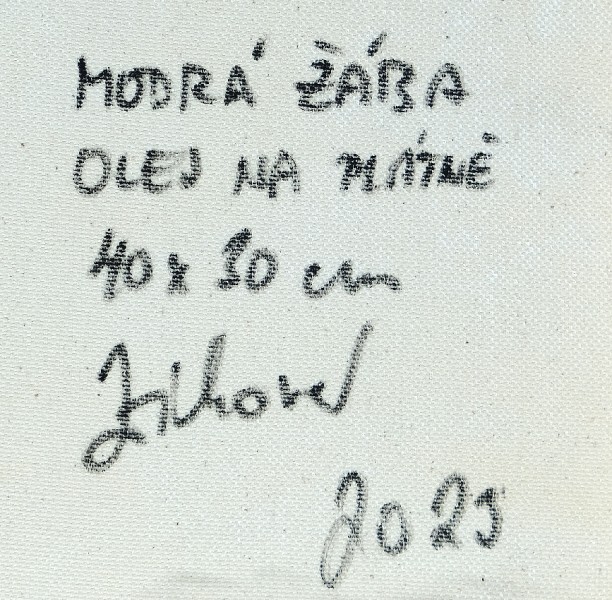 MODRÁ ŽÁBA
OLEJ NA PLÁTNĚ
40x30 cm
2023